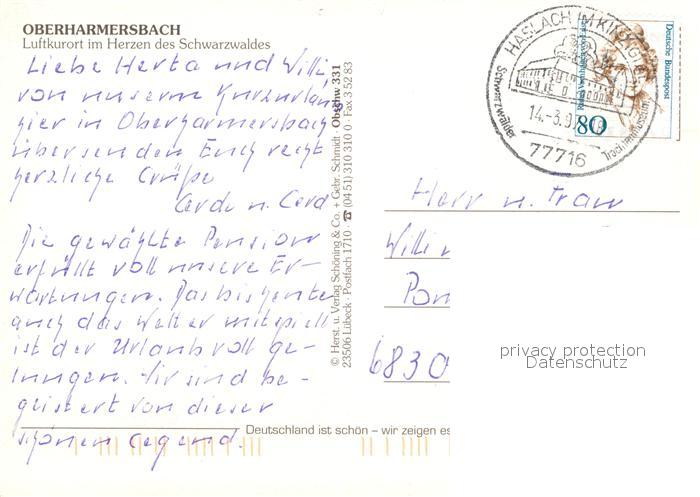 OBERHARMERSBACH
Luftkurort im Herzen des Schwarzwaldes
Liebe Herta und Willi
von unserem Kurzurlaub
hier in Oberharmersbach
übersenden Euch recht
herzliche Grüße
Gerda u. Gerd
Die gewählte Pension
erfüllt voll unsere Er-
wartungen. Da bis heute
auch das Wetter mitspielt
ist der Urlaub voll ge-
lungen. Wir sind be-
geistert von dieser
schönen Gegend.
Deutschland ist schön – wir zeigen es
© Herst. u. Verlag Schöning & Co. + Gebr. Schmidt · Obghw 331
23506 Lübeck · Postfach 1710 · ☎ (04 51) 310 310 · Fax 3 52 83
HASLACH IM KINZIGTAL
Schwarzwälder Trachtenmuseum
14.-3.97
77716
Deutsche Bundespost
80
Herr u. Frau
Willi
6830
privacy protection
Datenschutz